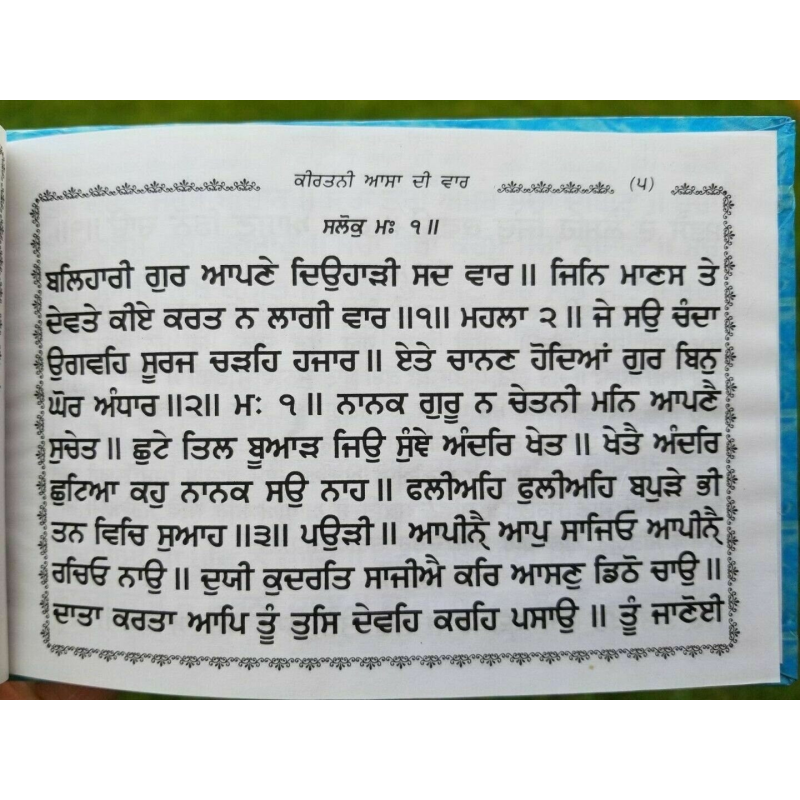 ਕੀਰਤਨੀ ਆਸਾ ਦੀ ਵਾਰ (੫)
ਸਲੋਕੁ ਮਃ ੧॥
ਬਲਿਹਾਰੀ ਗੁਰ ਆਪਣੇ ਦਿਉਹਾੜੀ ਸਦ ਵਾਰ॥ ਜਿਨਿ ਮਾਣਸ ਤੇ
ਦੇਵਤੇ ਕੀਏ ਕਰਤ ਨ ਲਾਗੀ ਵਾਰ॥੧॥ ਮਹਲਾ ੨॥ ਜੇ ਸਉ ਚੰਦਾ
ਉਗਵਹਿ ਸੂਰਜ ਚੜਹਿ ਹਜਾਰ॥ ਏਤੇ ਚਾਨਣ ਹੋਦਿਆਂ ਗੁਰ ਬਿਨੁ
ਘੋਰ ਅੰਧਾਰ॥੨॥ ਮਃ ੧॥ ਨਾਨਕ ਗੁਰੂ ਨ ਚੇਤਨੀ ਮਨਿ ਆਪਣੈ
ਸੁਚੇਤ॥ ਛੁਟੇ ਤਿਲ ਬੂਆੜ ਜਿਉ ਸੁੰਞੇ ਅੰਦਰਿ ਖੇਤ॥ ਖੇਤੈ ਅੰਦਰਿ
ਛੁਟਿਆ ਕਹੁ ਨਾਨਕ ਸਉ ਨਾਹ॥ ਫਲੀਅਹਿ ਫੁਲੀਅਹਿ ਬਪੁੜੇ ਭੀ
ਤਨ ਵਿਚਿ ਸੁਆਹ॥੩॥ ਪਉੜੀ॥ ਆਪੀਨੈ੍ ਆਪੁ ਸਾਜਿਓ ਆਪੀਨੈ੍
ਰਚਿਓ ਨਾਉ॥ ਦੁਯੀ ਕੁਦਰਤਿ ਸਾਜੀਐ ਕਰਿ ਆਸਣੁ ਡਿਠੋ ਚਾਉ॥
ਦਾਤਾ ਕਰਤਾ ਆਪਿ ਤੂੰ ਤੁਸਿ ਦੇਵਹਿ ਕਰਹਿ ਪਸਾਉ॥ ਤੂੰ ਜਾਣੋਈ